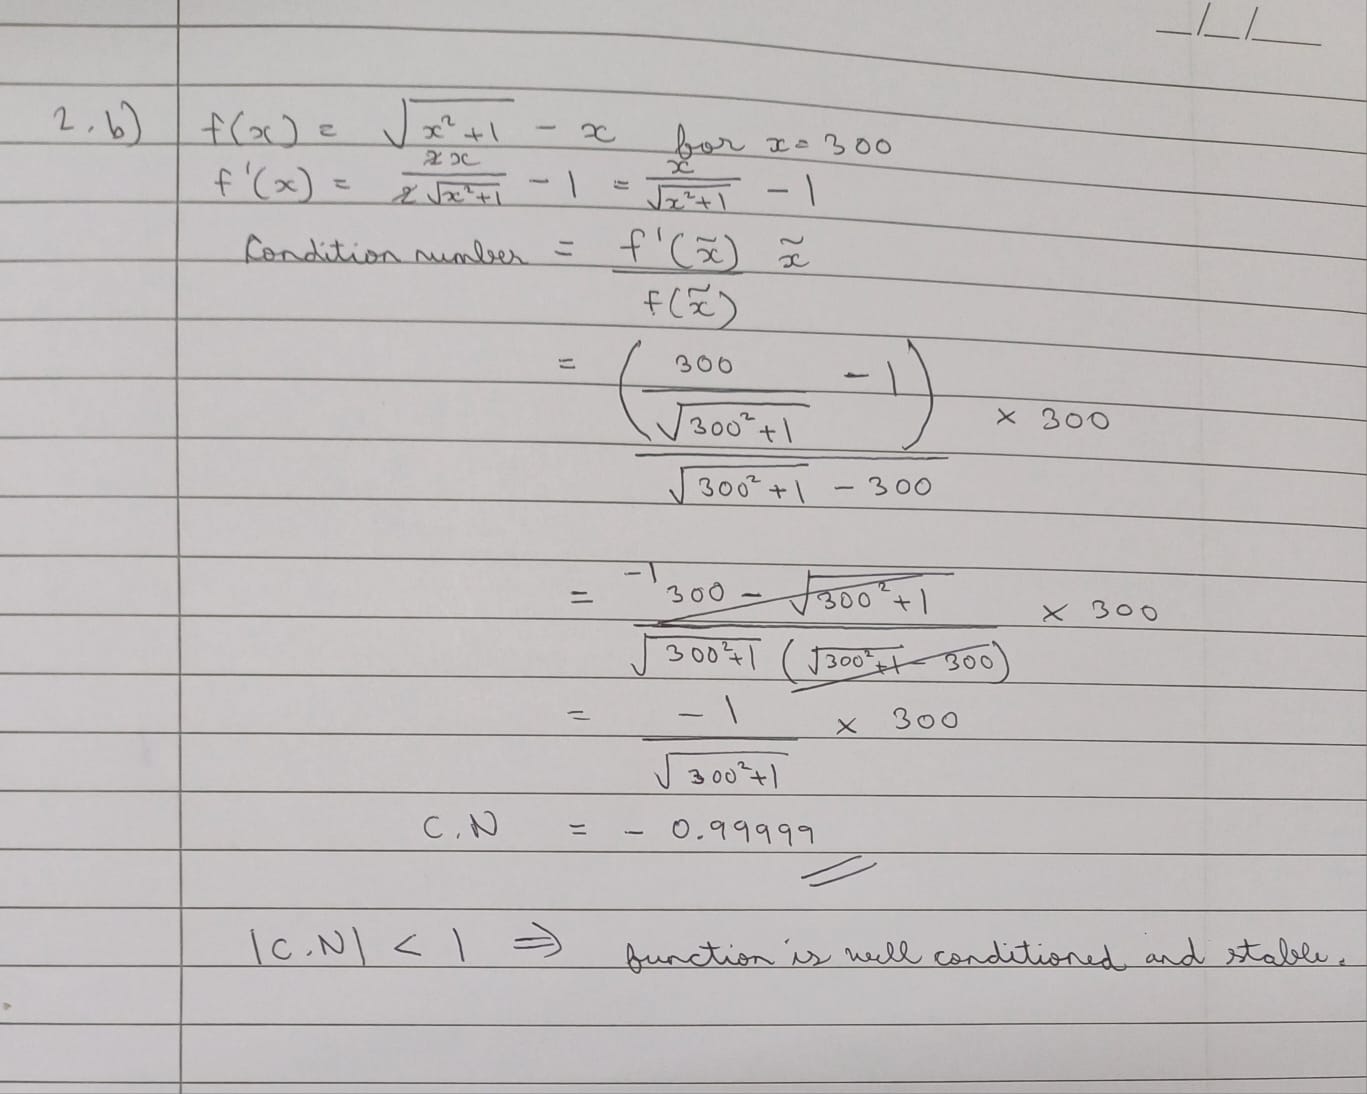 _/_/__
2. b) f(x) = √(x²+1) - x for x = 300
f'(x) = 2x / 2√(x²+1) - 1 = x / √(x²+1) - 1
Condition number = f'(x̃) x̃ / f(x̃)
= (300 / √(300²+1) - 1) / (√(300²+1) - 300) × 300
= -1 300 - √(300²+1) / √(300²+1) (√(300²+1) - 300) × 300
= -1 / √(300²+1) × 300
C.N = - 0.99999
|C.N| < 1 ⇒ function is well conditioned and stable.